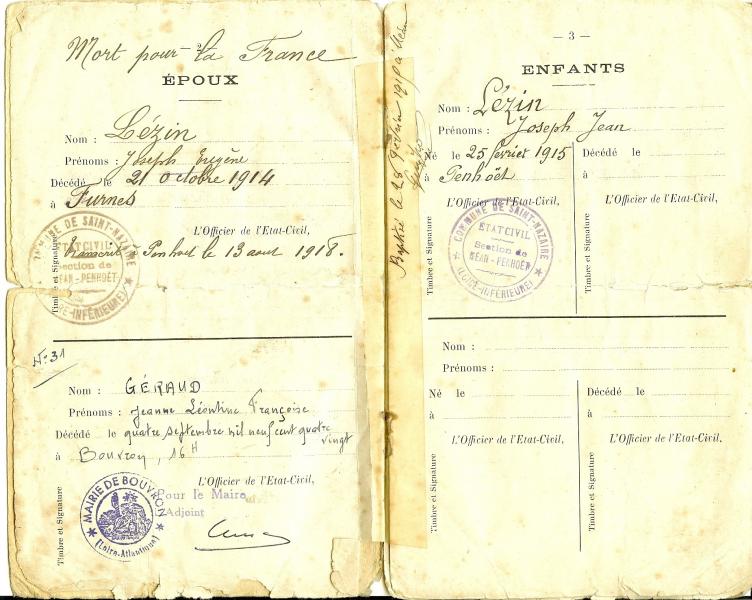 Mort pour la France
ÉPOUX
Nom : Lézin
Prénoms : Joseph Eugène
Décédé le 21 octobre 1914
à Furnes
L'Officier de l'Etat-Civil,
Transcrit à Penhoët le 13 aout 1918.
COMMUNE DE SAINT-NAZAIRE
ETAT CIVIL
Section de
MÉAN-PENHOËT
(LOIRE-INFÉRIEURE)
Timbre et Signature
N° 31
Nom : GÉRAUD
Prénoms : Jeanne Léontine Françoise
Décédé le quatre septembre mil neuf cent quatre
vingt
à Bouvron, 16H
L'Officier de l'Etat-Civil,
Pour le Maire
L'Adjoint
MAIRIE DE BOUVRON
(Loire-Atlantique)
Timbre et Signature
Baptisé le 28 février 1915 à
— 3 —
ENFANTS
Nom : Lézin
Prénoms : Joseph Jean
Né le 25 fevrier 1915
à Penhoët
Décédé le
à
L'Officier de l'Etat-Civil,
L'Officier de l'Etat-Civil,
COMMUNE DE SAINT-NAZAIRE
ETAT CIVIL
Section de
MÉAN-PENHOËT
(LOIRE-INFÉRIEURE)
Timbre et Signature
Timbre et Signature
Nom :
Prénoms :
Né le
à
Décédé le
à
L'Officier de l'Etat-Civil,
L'Officier de l'Etat-Civil,
Timbre et Signature
Timbre et Signature